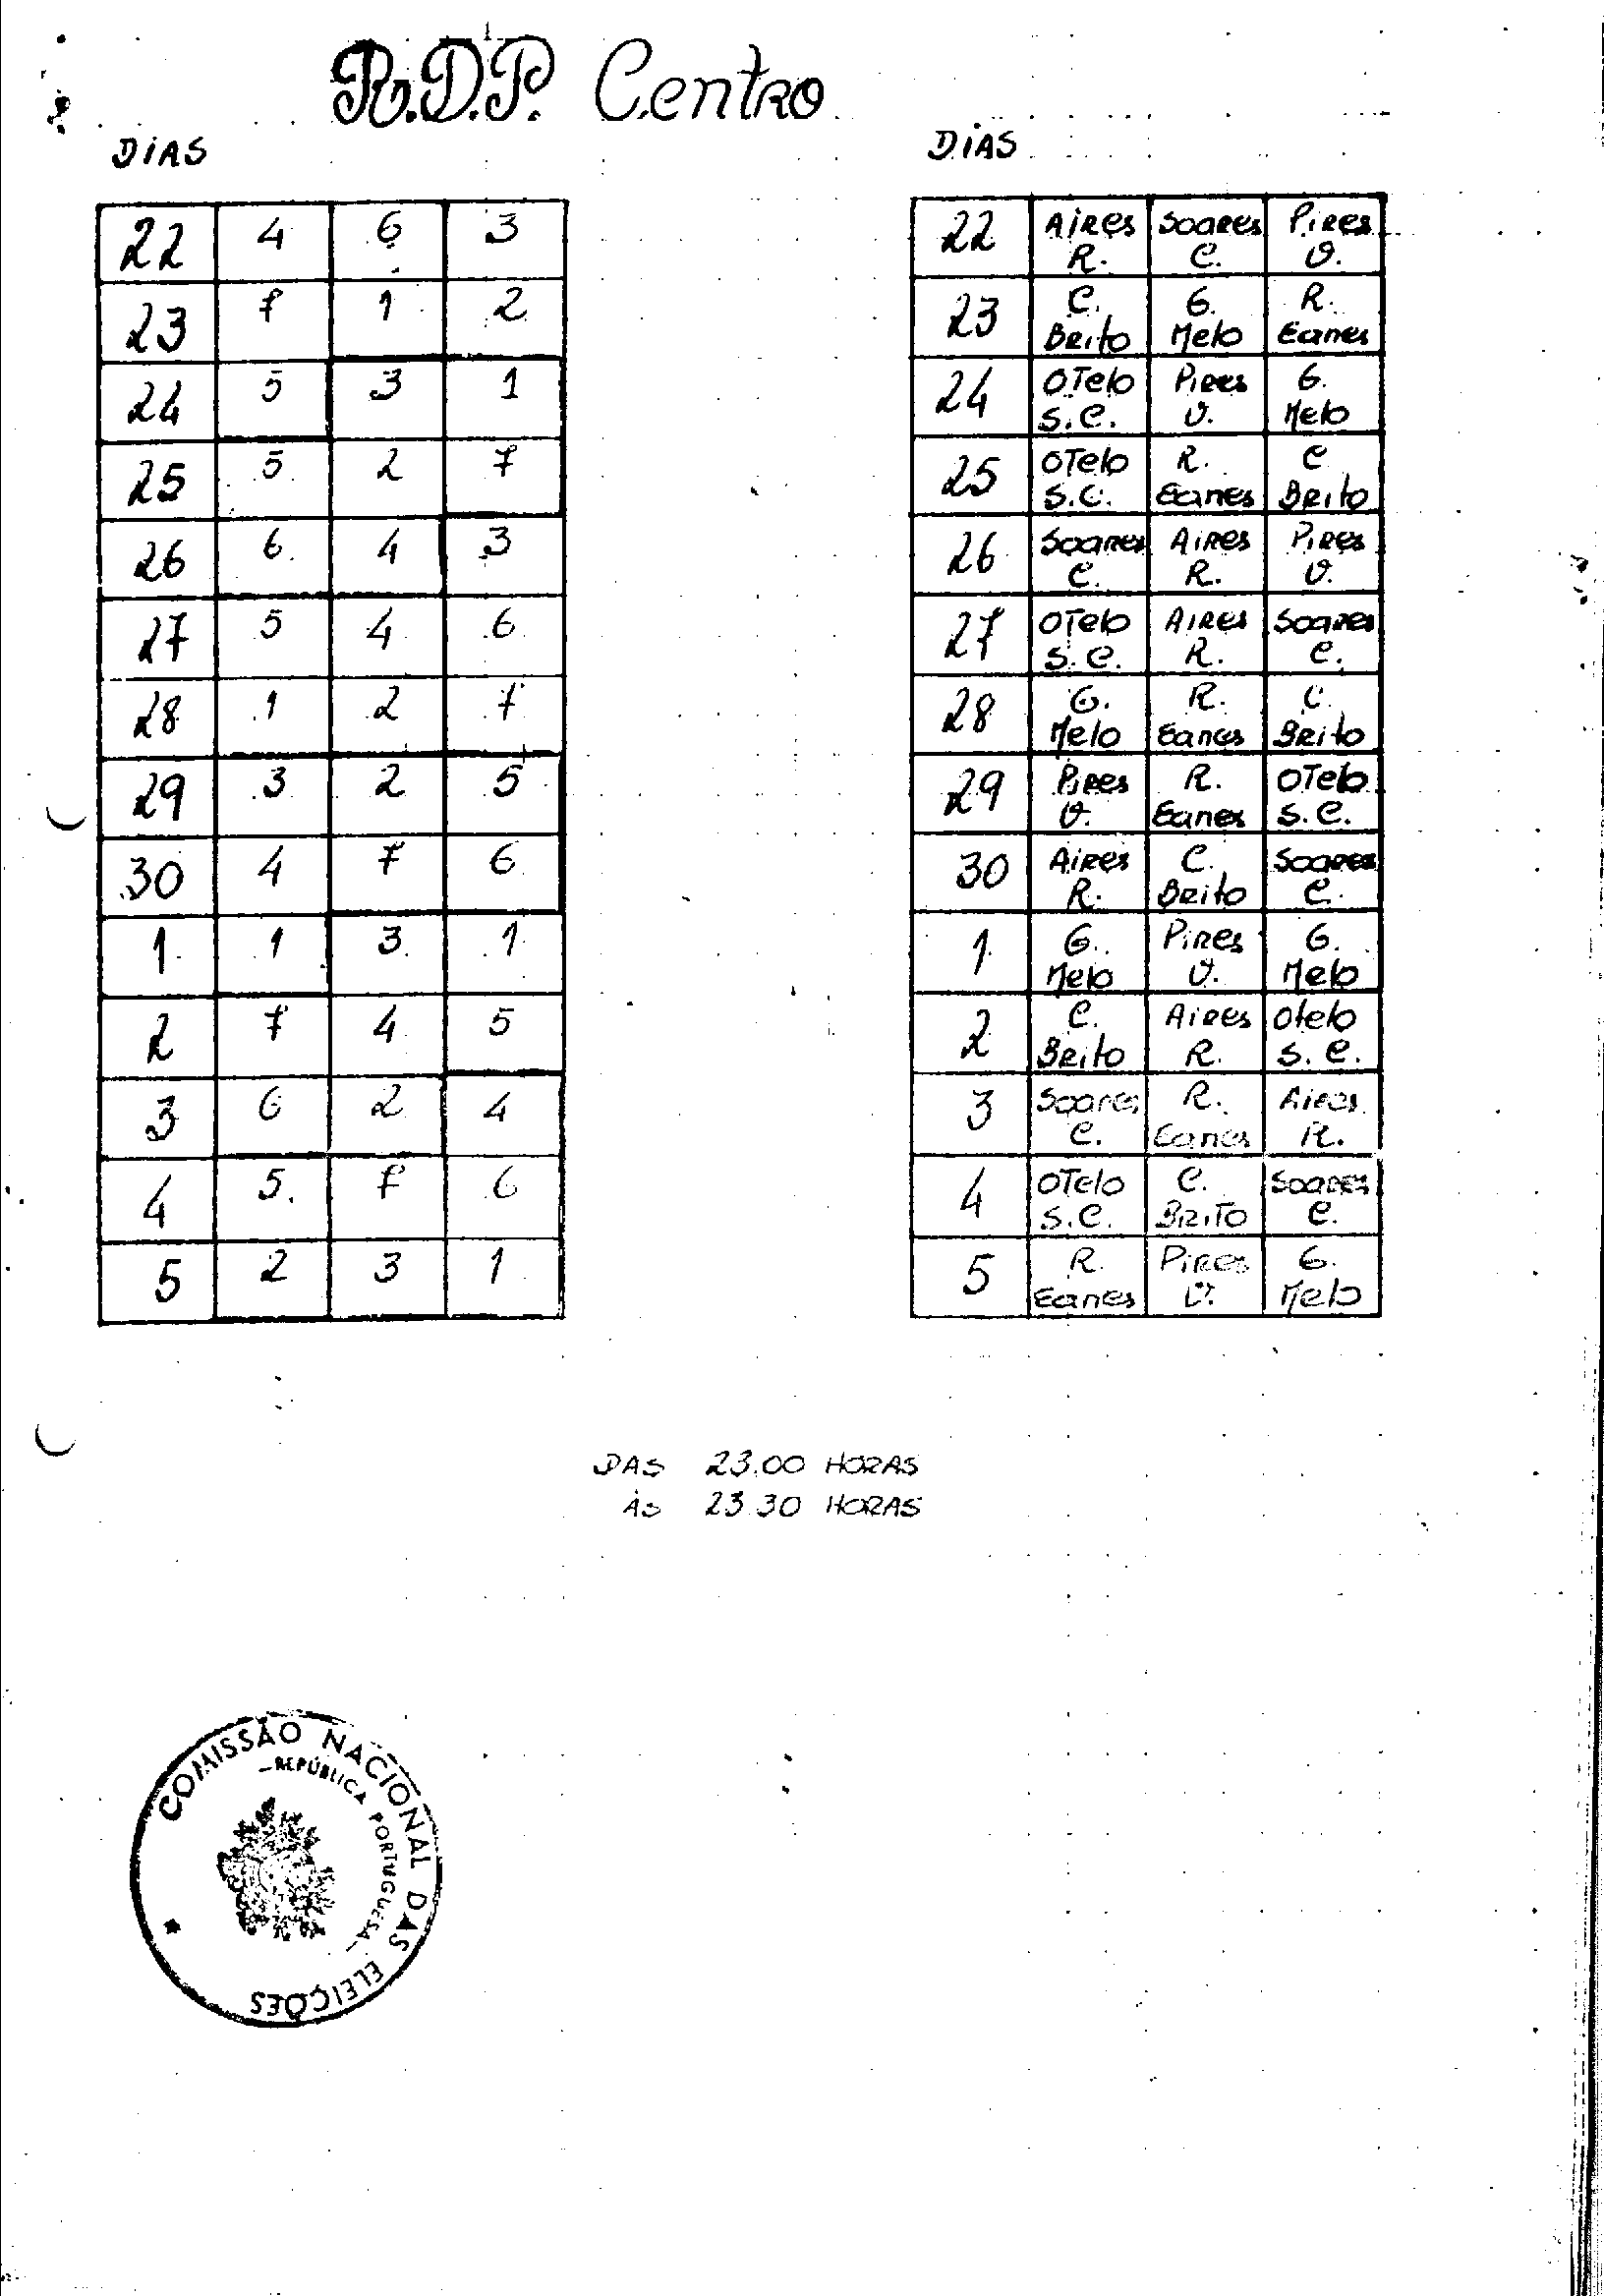 R.D.P. Centro
DIAS
22 4 6 3
23 7 1 2
24 5 3 1
25 5 2 7
26 6 4 3
27 5 4 6
28 1 2 7
29 3 2 5
30 4 7 6
1 1 3 1
2 7 4 5
3 6 2 4
4 5 7 6
5 2 3 1
DIAS
22 AIRES SOARES PIRES
R. C. V.
23 C. G. R.
BRITO MELO EANES
24 OTELO PIRES G.
S.C. V. MELO
25 OTELO R. C
S.C. EANES BRITO
26 SOARES AIRES PIRES
C. R. V.
27 OTELO AIRES SOARES
S.C. R. C.
28 G. R. C.
MELO EANES BRITO
29 PIRES R. OTELO
V. EANES S.C.
30 AIRES C. SOARES
R. BRITO C.
1 G. PIRES G.
MELO V. MELO
2 C. AIRES OTELO
BRITO R. S.C.
3 SOARES R. AIRES
C. EANES R.
4 OTELO C. SOARES
S.C. BRITO C.
5 R. PIRES G.
EANES V. MELO
DAS 23.00 HORAS
ÀS 23.30 HORAS
COMISSÃO NACIONAL DAS ELEIÇÕES
—REPÚBLICA PORTUGUESA—